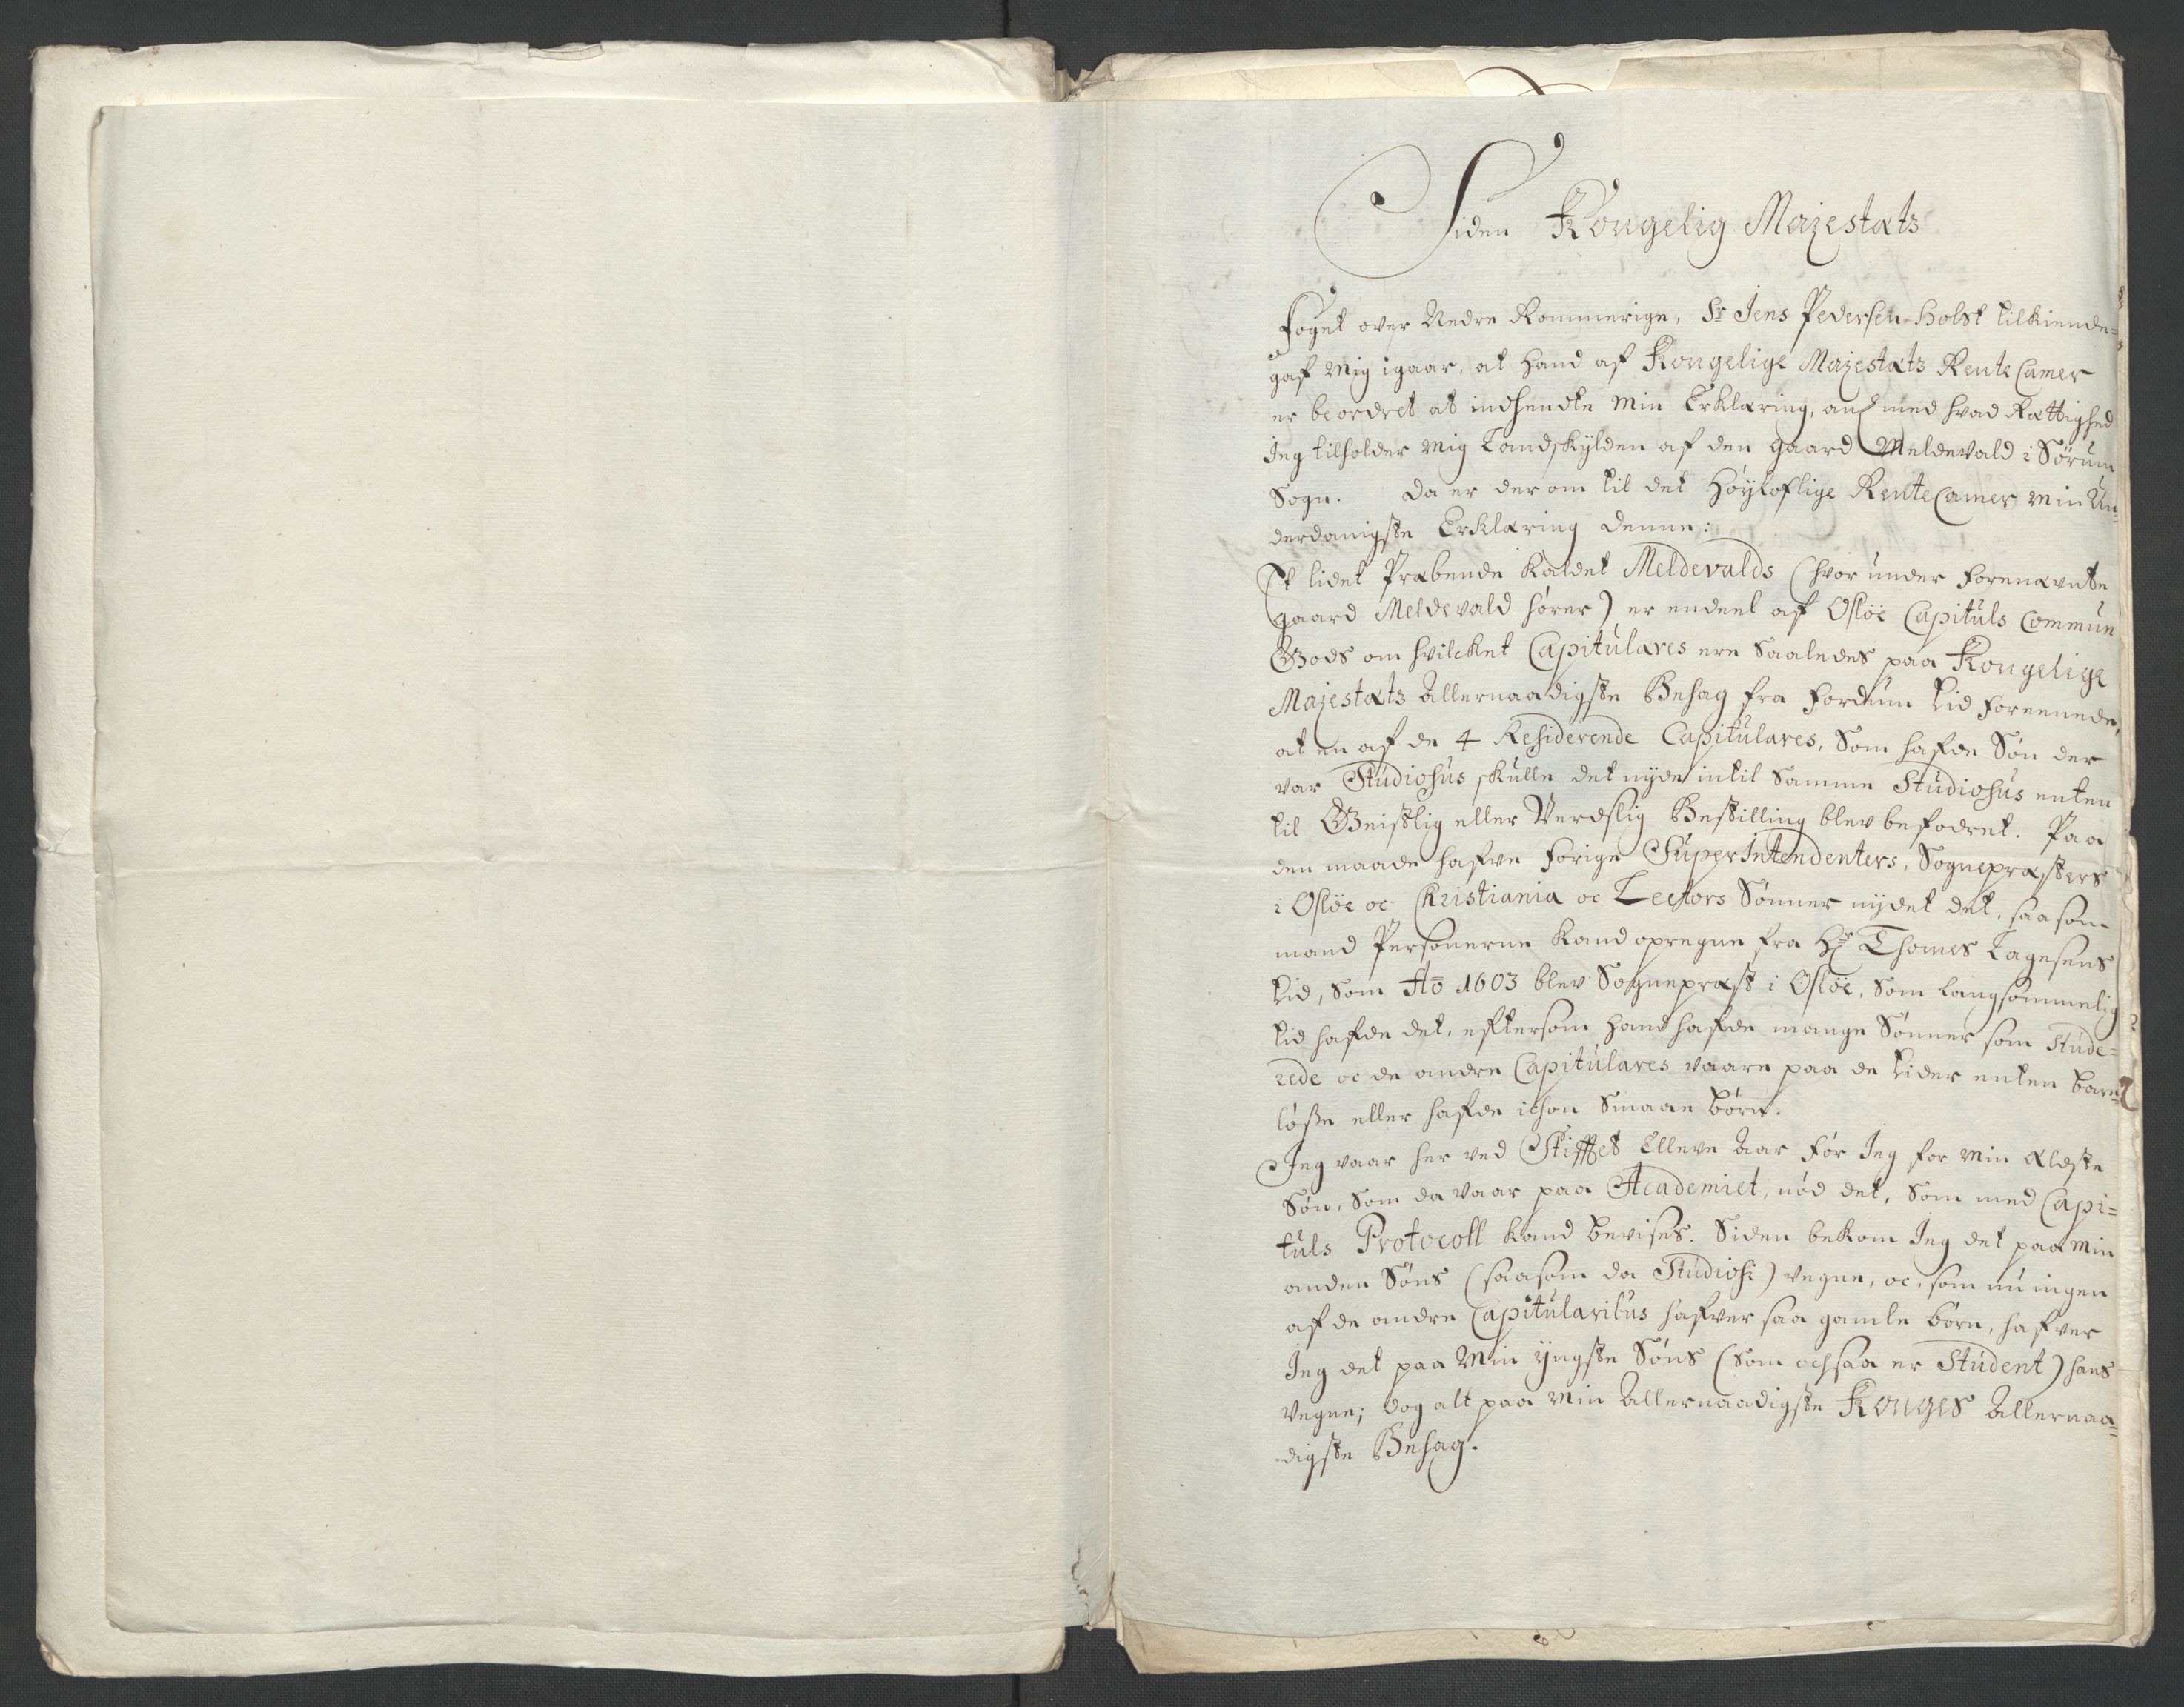 Siden Kongelig Majestæts
Foget over Nedre Rommerige, Sr Jens Pedersen Holst tilkiende=
gaf mig igaar, at hand af Kongelige Majestæts Rente Camer
er beordret at indsende min Erklæring, med hvad Rættighed
Jeg tilholder mig Landskylden af den gaard Meldevald i Sørum
Sogn. Da er der om til det Høyloflige RenteCamer min Un=
derdanigste Erklæring denne:
Et lidet Præbende kaldet Meldevalds (hvorunder forenævnte
gaard Meldevald hører) er endeel af Osloe Capituls Commun
Gods om hvilcket Capitulares ere saaledes paa Kongelige
Majestæts Allernaadigste Behag fra fordum tid foreenede,
at en af de 4 Residerende Capitulares, som hafde Søn der
var Studiosus skulle det nyde intil samme Studiosus enten
til Geistlig eller Verdslig Bestilling blev befodret. Paa
den maade hafve forige SuperIntendenters, Sognepræsters
i Osloe oc Christiania oc Lectors Sønner nydet det, saasom
mand Personerne kand opregne fra Hr Thomes Lagesens
tid, som Ao 1603 blev Sognepræst i Osloe, som langsommelig
tid hafde det, eftersom hand hafde mange Sønner som Stude=
rede oc de andre Capitulares vaare paa de tider enten barn=
løsse eller hafde ichon smaae børn.
Jeg vaar her ved Stifftet Elleve Aar før Jeg for min Ældste
Søn, som da vaar paa Academiet, nød det, som med Capi=
tuls Protocoll kand bevises. Siden bekom Jeg det paa min
anden Søns (saasom da Studiosi) vegne, oc, som nu ingen
af de andre Capitularibus hafver saa gamle børn, hafver
Jeg det paa min yngste Søns (som ochsaa er Student) hans
vegne; dog alt paa min Allernaadigste Konges Allernaa=
digste Behag.